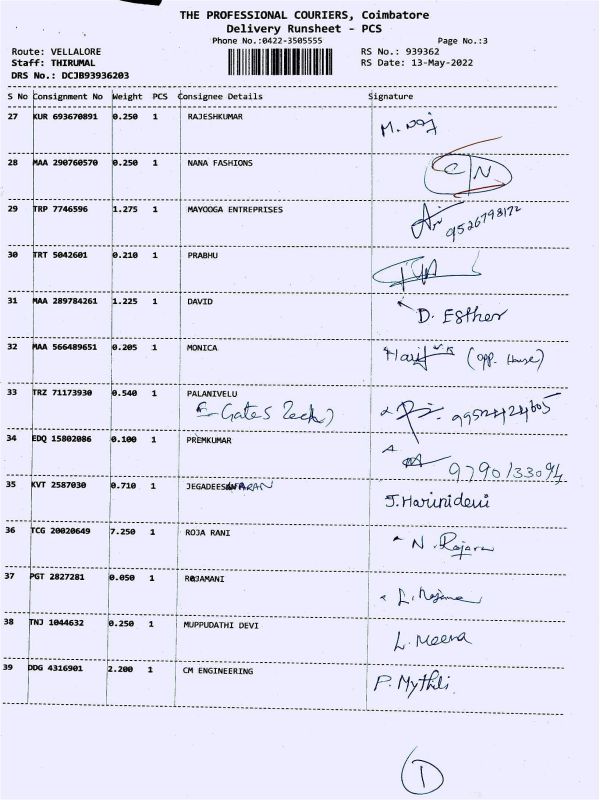 THE PROFESSIONAL COURIERS, Coimbatore
Delivery Runsheet - PCS
Phone No.:0422-3505555 Page No.:3
Route: VELLALORE RS No.: 939362
Staff: THIRUMAL RS Date: 13-May-2022
DRS No.: DCJB93936203
S No Consignment No Weight PCS Consignee Details Signature
27 KUR 693670891 0.250 1 RAJESHKUMAR
28 MAA 290760570 0.250 1 NANA FASHIONS C/N
29 TRP 7746596 1.275 1 MAYOOGA ENTREPRISES 9526798172
30 TRT 5042601 0.210 1 PRABHU
31 MAA 289784261 1.225 1 DAVID D. Esther
32 MAA 566489651 0.205 1 MONICA (opp. House)
33 TRZ 71173930 0.540 1 PALANIVELU
34 EDQ 15802086 0.100 1 PREMKUMAR
35 KVT 2587030 0.710 1 JEGADEESWARAN J. Harinidevi
36 TCG 20020649 7.250 1 ROJA RANI
37 PGT 2827281 0.050 1 ROJAMANI
38 TNJ 1044632 0.250 1 MUPPUDATHI DEVI L. Meena
39 DDG 4316901 2.200 1 CM ENGINEERING P. Mythli
1